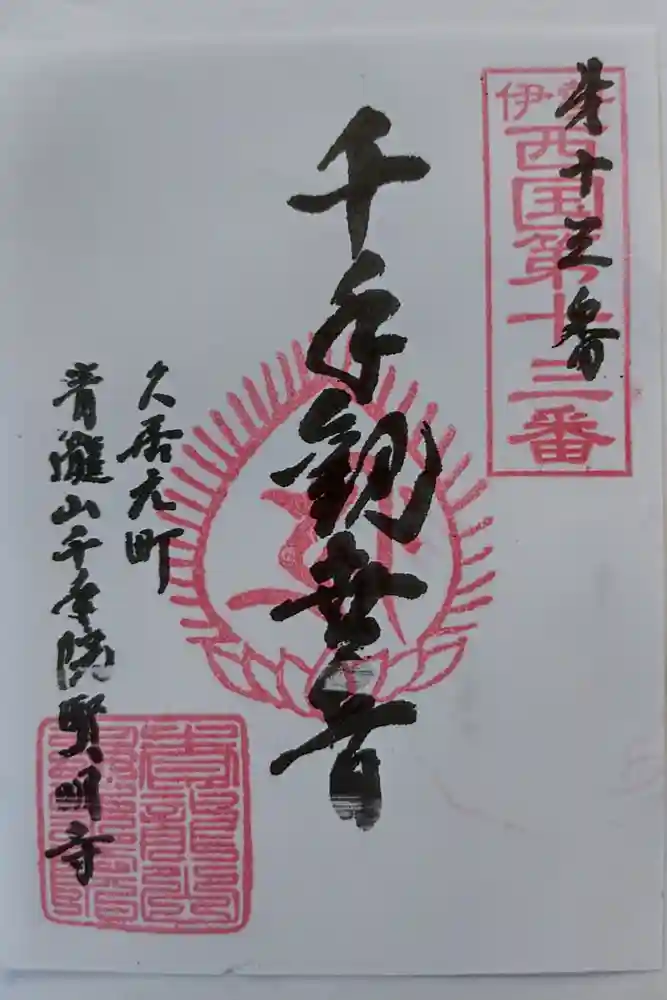 第十三番
伊勢
西国第十三番
千手観世音
久居元町
青瀧山千手院賢明寺